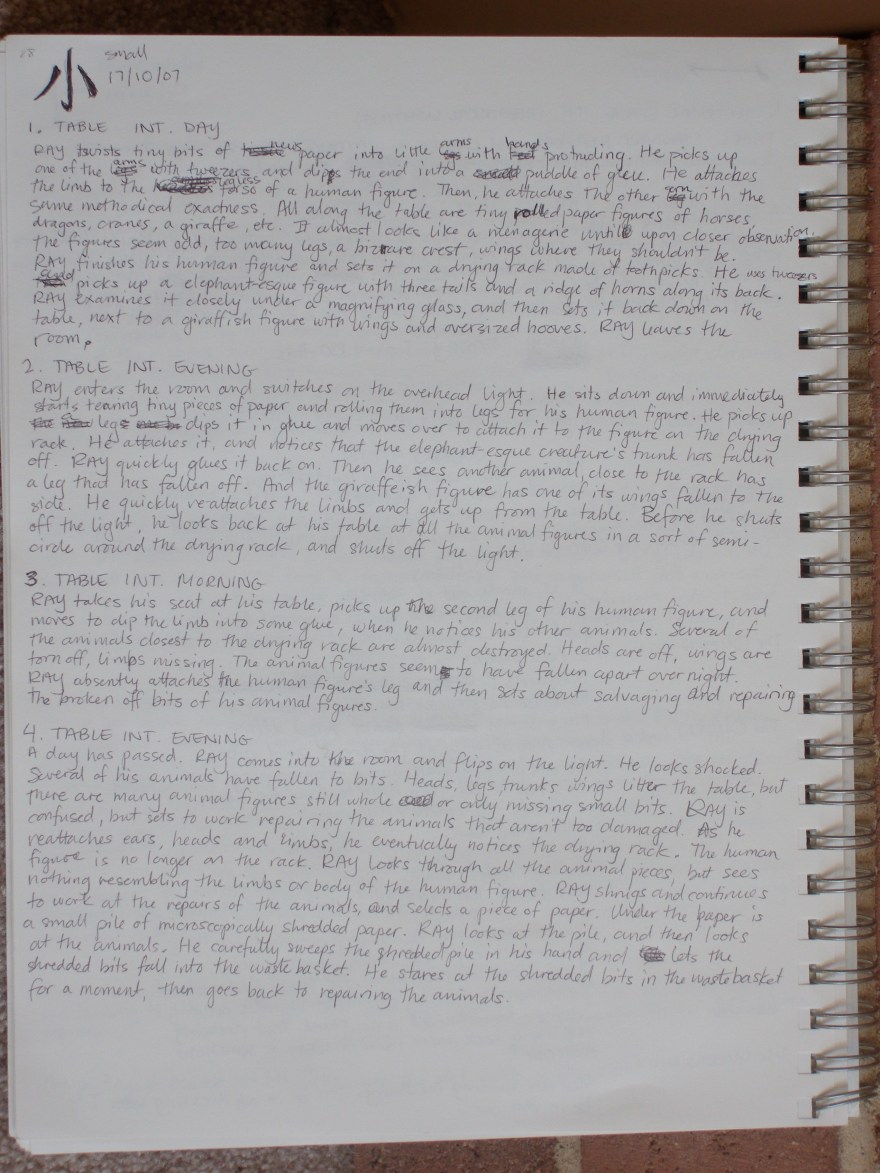 08
小 small
17/10/07
1. TABLE INT. DAY
RAY twists tiny bits of news paper into little arms with hands protruding. He picks up
one of the arms with tweezers and dips the end into a puddle of glue. He attaches
the limb to the torso of a human figure. Then, he attaches the other arm with the
same methodical exactness. All along the table are tiny rolled paper figures of horses,
dragons, cranes, a giraffe, etc. It almost looks like a menagerie until upon closer observation,
the figures seem odd, too many legs, a bizzare crest, wings where they shouldn't be.
RAY finishes his human figure and sets it on a drying rack made of toothpicks. He uses tweezers
and picks up a elephant-esque figure with three tails and a ridge of horns along its back.
RAY examines it closely under a magnifying glass, and then sets it back down on the
table, next to a giraffish figure with wings and oversized hooves. RAY leaves the
room.
2. TABLE INT. EVENING
RAY enters the room and switches on the overhead light. He sits down and immediately
starts tearing tiny pieces of paper and rolling them into legs for his human figure. He picks up
leg dips it in glue and moves over to attach it to the figure on the drying
rack. He attaches it, and notices that the elephant-esque creature's trunk has fallen
off. RAY quickly glues it back on. Then he sees another animal, close to the rack has
a leg that has fallen off. And the giraffeish figure has one of its wings fallen to the
side. He quickly re-attaches the limbs and gets up from the table. Before he shuts
off the light, he looks back at his table at all the animal figures in a sort of semi-
circle around the drying rack, and shuts off the light.
3. TABLE INT. MORNING
RAY takes his seat at his table, picks up the second leg of his human figure, and
moves to dip the limb into some glue, when he notices his other animals. Several of
the animals closest to the drying rack are almost destroyed. Heads are off, wings are
torn off, limbs missing. The animal figures seem to have fallen apart overnight.
RAY absently attaches the human figure's leg and then sets about salvaging and repairing
the broken off bits of his animal figures.
4. TABLE INT. EVENING
A day has passed. RAY comes into the room and flips on the light. He looks shocked.
Several of his animals have fallen to bits. Heads, legs, trunks wings litter the table, but
there are many animal figures still whole or only missing small bits. RAY is
confused, but sets to work repairing the animals that aren't too damaged. As he
reattaches ears, heads and limbs, he eventually notices the drying rack. The human
figure is no longer on the rack. RAY looks through all the animal pieces, but sees
nothing resembling the limbs or body of the human figure. RAY shrugs and continues
to work at the repairs of the animals, and selects a piece of paper. Under the paper is
a small pile of microscopically shredded paper. RAY looks at the pile, and then looks
at the animals. He carefully sweeps the shredded pile in his hand and lets the
shredded bits fall into the waste basket. He stares at the shredded bits in the wastebasket
for a moment, then goes back to repairing the animals.